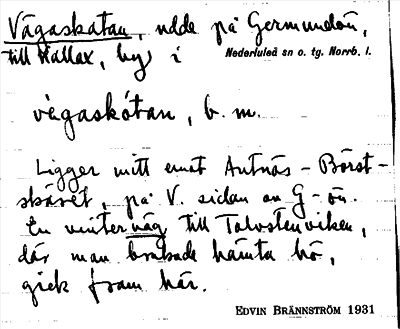 Vägaskatan, udde på Germundön,
till Hallax, by i Nederluleå sn o. tg. Norrb. l.
vègaskótan, b. m.
Ligger mitt emot Antnäs-Börst-
skäret, på V. sidan av G-ön.
En vinterväg till Talvstenviken,
där man brukade hämta hö,
gick fram här.
EDVIN BRÄNNSTRÖM 1931